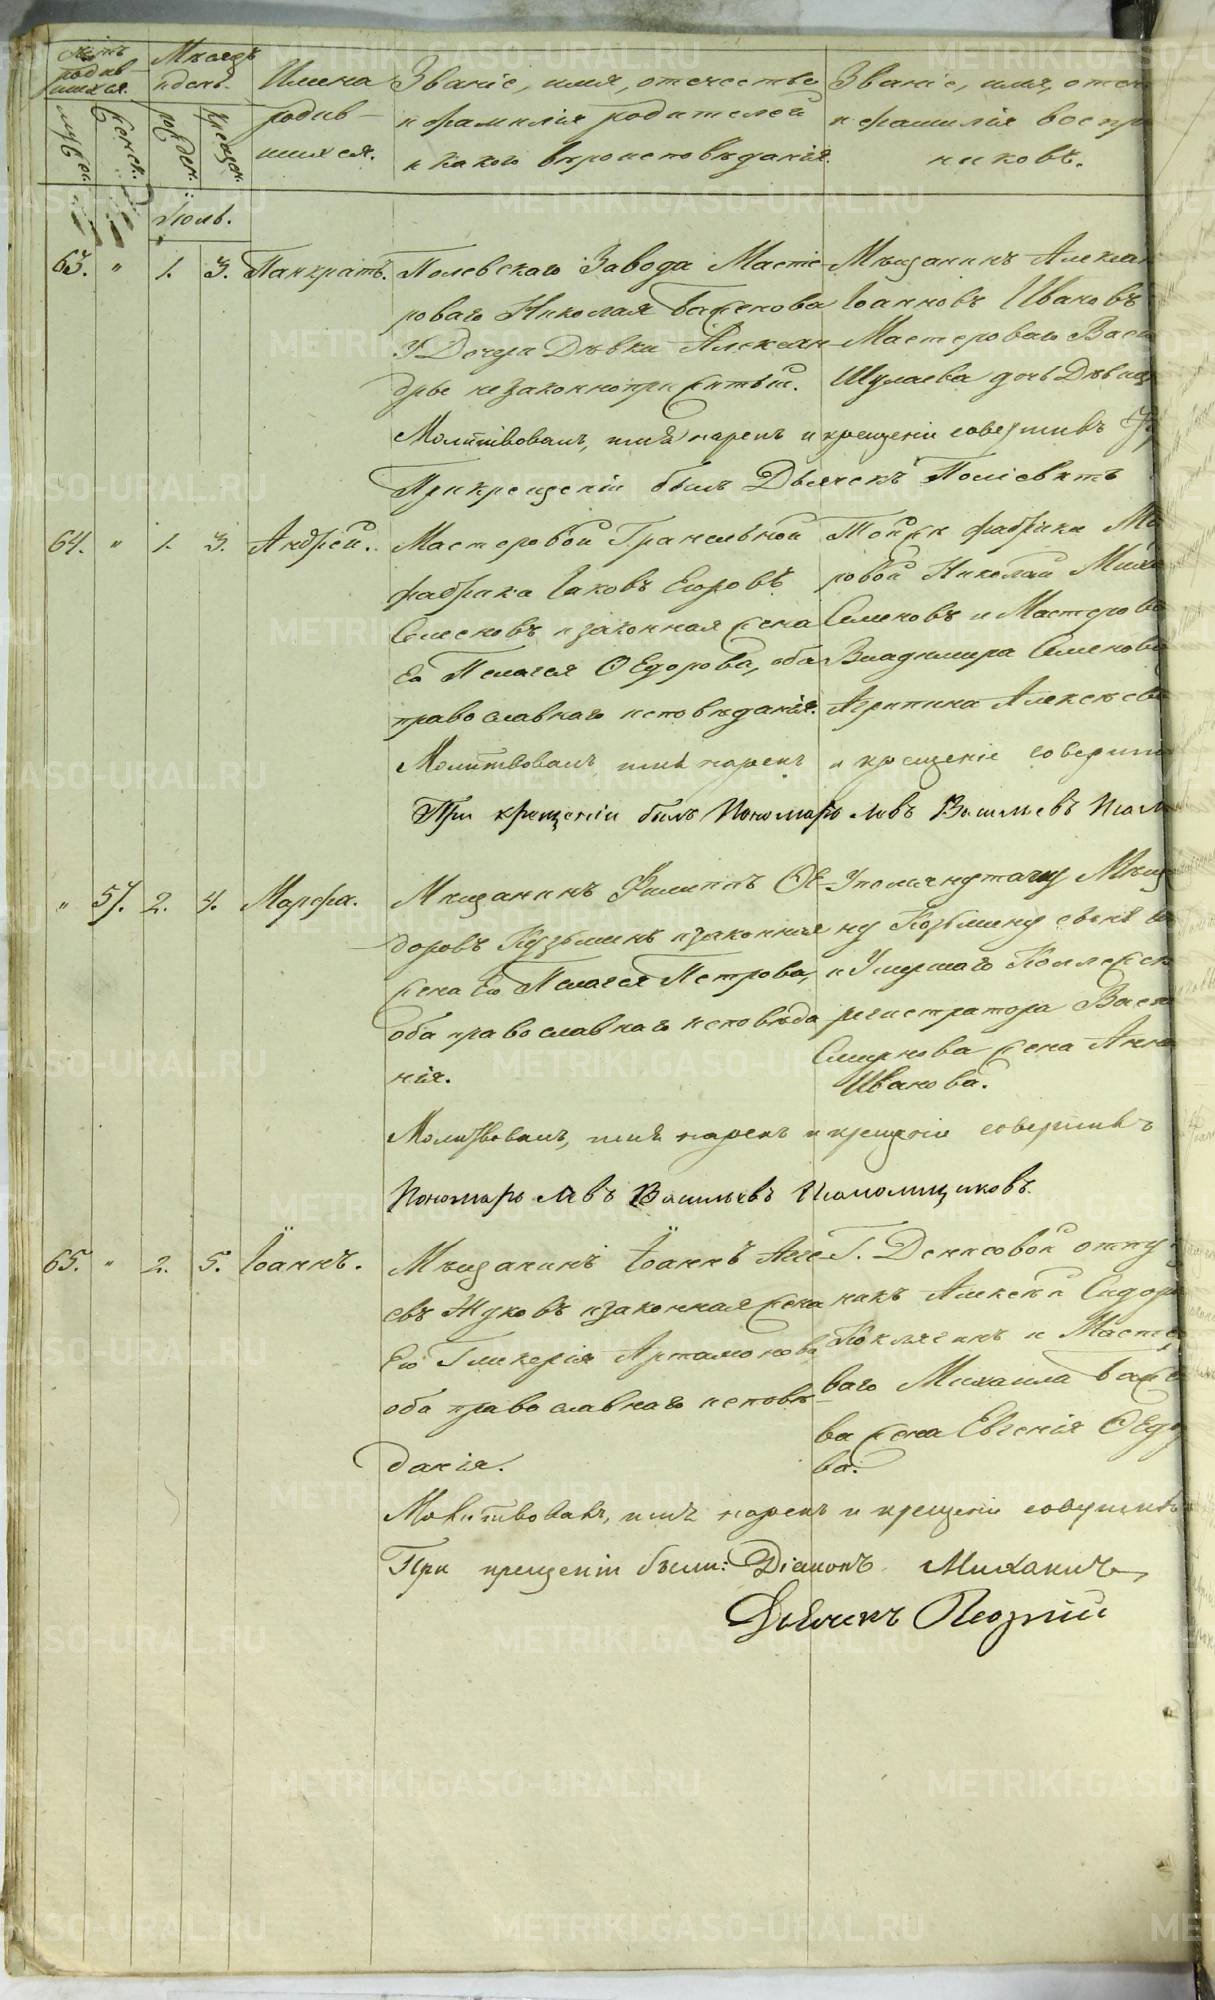 родив-
шихся.
Мѣсяцъ
и день.
Имена
родив-
шихся.
Званіе, имя, отечество
и фамилія родителей
и какого вѣроисповѣданія.
Званіе, имя, отече
и фамилія воспр
никовъ.
мужеск.
женск.
рожден.
крещен.
Іюль.
63. " 1. 3. Панкратъ.
Полевскаго Завода Масте-
роваго Николая Баженова
у Дочери Дѣвки Алексан-
дры незаконноприжитый.
Мѣщанинъ Алексан
Іоанновъ Ивановъ
Мастероваго Васи
Шулаева дочь Дѣвица
Молитвовалъ, имя нарекъ и крещеніе совершилъ
При крещеніи былъ Дьячекъ
64. " 1. 3. Андрей.
Мастеровой Гранильной
фабрики Іаковъ Егоровъ
Семеновъ и законная жена
Его Пелагея Ѳедорова, оба
православнаго исповѣданія.
Той же фабрики Ма
ровой Николай Миха
Семеновъ и Мастерова
Владимира Семенова
Агрипина Алексѣева
Молитвовалъ имя нарекъ и крещеніе соверши
При крещеніи былъ Пономарь Левъ Васильевъ
" 57. 2. 4. Марфа.
Мѣщанинъ Филиппъ Ѳе-
доровъ Кузьминъ и законная
жена Его Пелагея Петрова,
оба православнаго исповѣда
нія.
Мѣщ
ну Козьмину
и Умершаго Коллежск
регистратора Васи
Смирнова жена Анна
Иванова.
Молитвовалъ, имя нарекъ и крещеніе совершилъ
Пономарь Левъ Васильевъ
65. " 2. 5. Іоаннъ.
Мѣщанинъ Іоаннъ Алексе
евъ Жуковъ и законная жена
Его Гликерія Артамонова
оба православнаго исповѣ-
данія.
Г. Денисовой отпу
никъ Алексѣй Сидоро
и Масте
ваго Михаила Баже
ва жена Евгенія Ѳедо
ва.
Молитвовалъ, имя нарекъ и крещеніе совершилъ
При крещеніи были: Діаконъ
Дьячекъ
METRIKI.GASO-URAL.RU